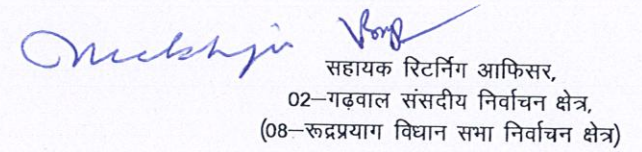 सहायक रिटर्निग आफिसर,
02–गढ़वाल संसदीय निर्वाचन क्षेत्र,
(08–रूद्रप्रयाग विधान सभा निर्वाचन क्षेत्र)